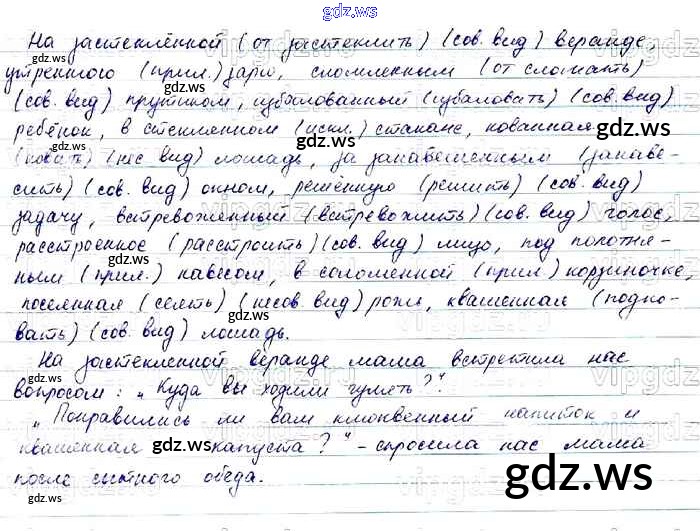 gdz.ws
На застеклённой (от застеклить) (сов. вид) веранде,
утреннюю (прил.) зарю, сломленным (от сломать)
(сов. вид) прутиком, избалованный (избаловать) (сов. вид)
ребёнок, в стеклянном (искл.) стакане, кованная
(ковать) (нес вид) лошадь, за занавешенным (занаве-
сить) (сов. вид) окном, решённую (решить) (сов. вид)
задачу, встревоженный (встревожить) (сов. вид) голос,
расстроенное (расстроить) (сов. вид) лицо, под полотня-
ным (прил.) навесом, в соломенной (прил) корзиночке,
посеянная (сеять) (несов. вид) рожь, квашенная (подко-
вать) (сов. вид) лошадь.
На застекленной веранде мама встретила нас
вопросом: „Куда вы ходили гулять?".
„Понравились ли вам клюквенный напиток и
квашенная капуста?" – спросила нас мама
после сытного обеда.
gdz.ws
gdz.ws
gdz.ws
gdz.ws
gdz.ws
gdz.ws